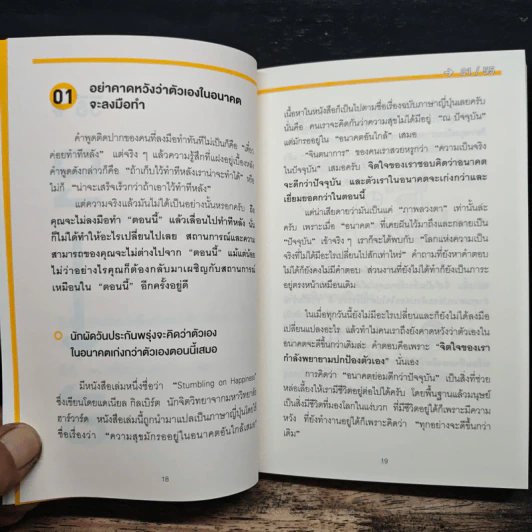 01
อย่าคาดหวังว่าตัวเองในอนาคต
จะลงมือทำ
คำพูดติดปากของคนที่ลงมือทำทันทีไม่เป็นก็คือ “เดี๋ยว
ค่อยทำทีหลัง” แต่จริง ๆ แล้วความรู้สึกที่แฝงอยู่เบื้องหลัง
คำพูดดังกล่าวก็คือ “ถ้าเก็บไว้ทำทีหลังเราน่าจะทำได้” หรือ
ไม่ก็ “น่าจะเสร็จเร็วกว่าถ้าเอาไว้ทำทีหลัง”
แต่ความจริงแล้วมันไม่ได้เป็นอย่างนั้นหรอกครับ ถึง
คุณจะไม่ลงมือทำ “ตอนนี้” แล้วเลื่อนไปทำทีหลัง นั่น
ก็ไม่ได้ทำให้อะไรเปลี่ยนไปเลย สถานการณ์และความ
สามารถของคุณจะไม่ต่างไปจาก “ตอนนี้” แม้แต่น้อย
ไม่ว่าอย่างไรคุณก็ต้องกลับมาเผชิญกับสถานการณ์
เหมือนใน “ตอนนี้” อีกครั้งอยู่ดี
นักผัดวันประกันพรุ่งจะคิดว่าตัวเอง
ในอนาคตเก่งกว่าตัวเองตอนนี้เสมอ
มีหนังสือเล่มหนึ่งชื่อว่า “Stumbling on Happiness”
ซึ่งเขียนโดยแดเนียล กิลเบิร์ต นักจิตวิทยาจากมหาวิทยาลัย
ฮาร์วาร์ด หนังสือเล่มนี้ถูกนำมาแปลเป็นภาษาญี่ปุ่นโดยใช้
ชื่อเรื่องว่า “ความสุขมักรออยู่ในอนาคตอันใกล้เสมอ”
18
31 / 55
เนื้อหาในหนังสือก็เป็นไปตามชื่อเรื่องฉบับภาษาญี่ปุ่นเลยครับ
นั่นคือ คนเราจะคิดกันว่าความสุขไม่ได้มีอยู่ “ณ ปัจจุบัน”
แต่มักรออยู่ใน “อนาคตอันใกล้” เสมอ
“จินตนาการ” ของคนเราสวยหรูกว่า “ความเป็นจริง
ในปัจจุบัน” เสมอครับ จิตใจของเราชอบคิดว่าอนาคต
จะดีกว่าปัจจุบัน และตัวเราในอนาคตจะเก่งกว่าและ
เยี่ยมยอดกว่าในตอนนี้
แต่น่าเสียดายว่ามันเป็นแค่ “ภาพลวงตา” เท่านั้นล่ะ
ครับ เพราะเมื่อ “อนาคต” ที่เคยฝันไว้มาถึงและกลายเป็น
“ปัจจุบัน” เข้าจริง ๆ เราก็จะได้พบกับ “โลกแห่งความเป็น
จริงที่ไม่ได้มีอะไรเปลี่ยนไปสักเท่าไหร่” คำถามที่ยังหาคำตอบ
ไม่ได้ก็ยังคงไม่มีคำตอบ ส่วนงานที่ยังไม่ได้ทำก็ยังเป็นภาระ
อยู่ตรงหน้าเหมือนเดิม
ในเมื่อทุกวันนี้ยังไม่มีอะไรเปลี่ยนและก็ยังไม่ได้ลงมือ
เปลี่ยนแปลงอะไร แล้วทำไมคนเราถึงยังคาดหวังว่าตัวเองใน
อนาคตจะดีขึ้นกว่าเดิมล่ะ คำตอบคือเพราะ “จิตใจของเรา
กำลังพยายามปกป้องตัวเอง” นั่นเอง
การคิดว่า “อนาคตย่อมดีกว่าปัจจุบัน” เป็นสิ่งที่ช่วย
หล่อเลี้ยงให้เรามีชีวิตอยู่ต่อไปได้ครับ โดยพื้นฐานแล้วมนุษย์
เป็นสิ่งมีชีวิตที่มองโลกในแง่บวก ที่มีชีวิตอยู่ได้ก็เพราะมีความ
หวัง ที่ยังทำงานอยู่ได้ก็เพราะคิดว่า “ทุกอย่างจะดีขึ้นกว่า
เดิม”
19